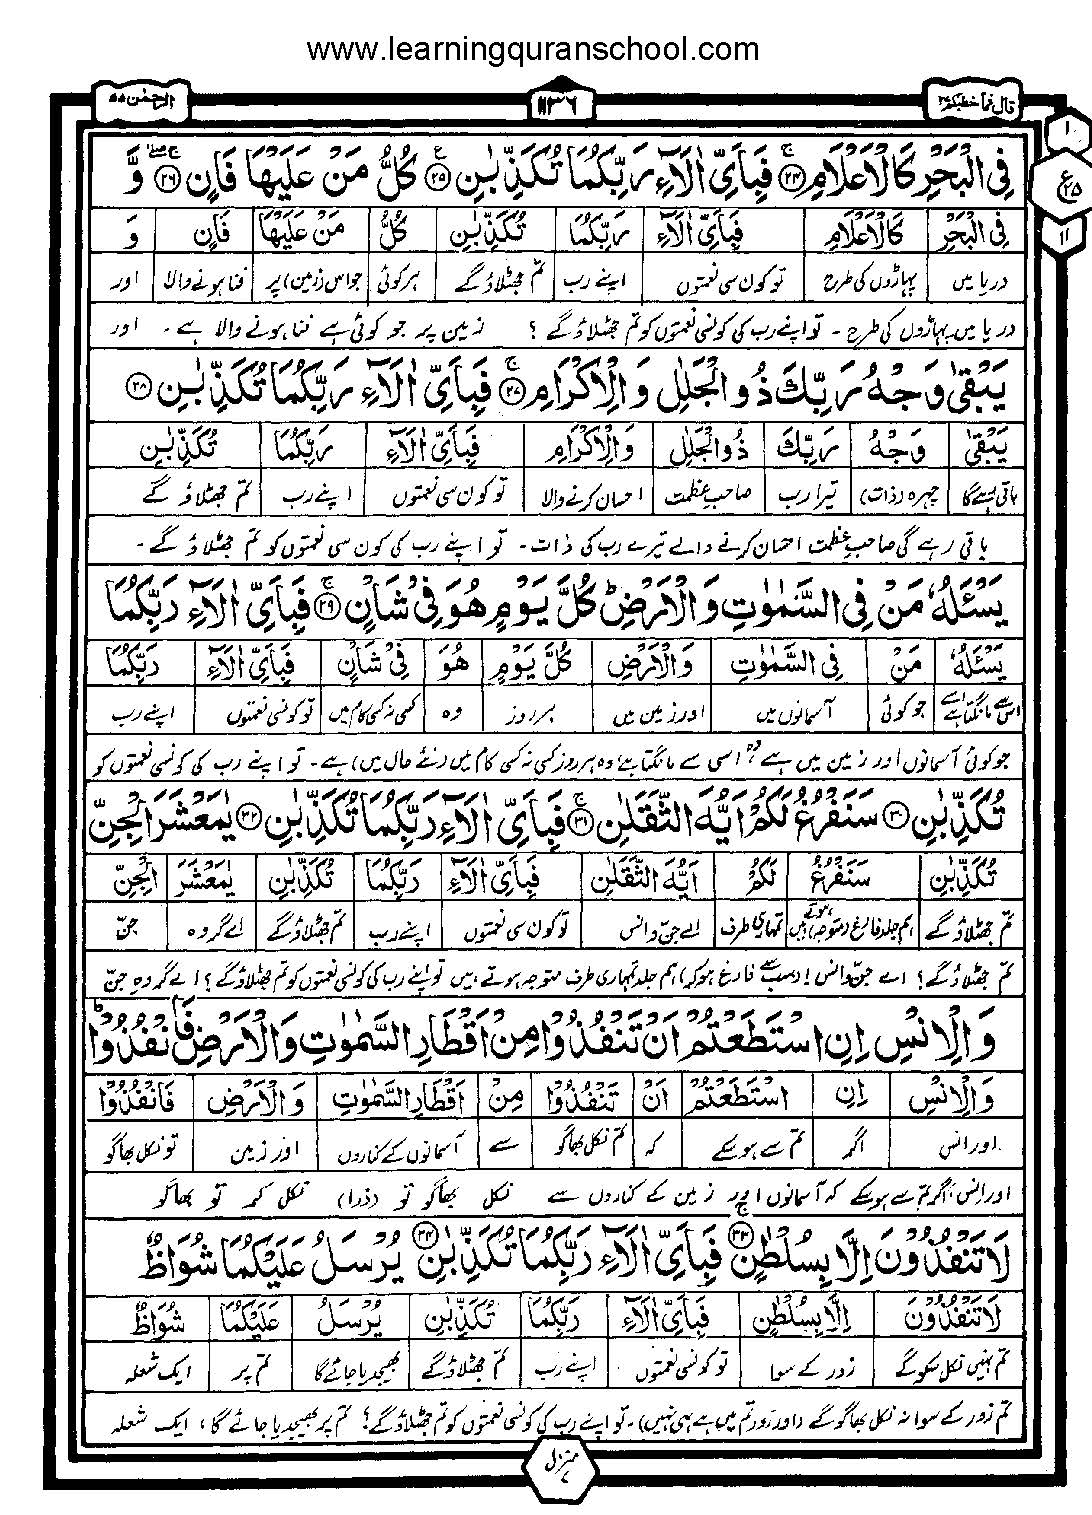 www.learningquranschool.com
الرحمٰن ۵۵
۱۱۳۶
قال فما خطبكم ۲۷
۱
ع ۲۵
۱۱
فِى الْبَحْرِ كَالْاَعْلَامِ ﴿۲۴﴾ فَبِاَىِّ اٰلَآءِ رَبِّكُمَا تُكَذِّبٰنِ ﴿۲۵﴾ كُلُّ مَنْ عَلَيْهَا فَانٍ ﴿۲۶﴾ وَّ
فِى الْبَحْرِ كَالْاَعْلَامِ فَبِاَىِّ اٰلَآءِ رَبِّكُمَا تُكَذِّبٰنِ كُلُّ مَنْ عَلَيْهَا فَانٍ وَّ
دریا میں پہاڑوں کی طرح تو کون سی نعمتوں اپنے رب تم جھٹلاؤ گے ہر کوئی جو اس (زمین) پر فنا ہونے والا اور
دریا میں پہاڑوں کی طرح ۔ تو اپنے رب کی کونسی نعمتوں کو تم جھٹلاؤ گے ؟ زمین پر جو کوئی ہے فنا ہونے والا ہے ۔ اور
يَبْقٰى وَجْهُ رَبِّكَ ذُو الْجَلٰلِ وَالْاِكْرَامِ ﴿۲۷﴾ فَبِاَىِّ اٰلَآءِ رَبِّكُمَا تُكَذِّبٰنِ ﴿۲۸﴾
يَبْقٰى وَجْهُ رَبِّكَ ذُو الْجَلٰلِ وَالْاِكْرَامِ فَبِاَىِّ اٰلَآءِ رَبِّكُمَا تُكَذِّبٰنِ
باقی رہے گا چہرہ (ذات) تیرا رب صاحبِ عظمت احسان کرنے والا تو کون سی نعمتوں اپنے رب تم جھٹلاؤ گے
باقی رہے گی صاحبِ عظمت احسان کرنے والے تیرے رب کی ذات ۔ تو اپنے رب کی کون سی نعمتوں کو تم جھٹلاؤ گے ۔
يَسْـَٔلُهٗ مَنْ فِى السَّمٰوٰتِ وَالْاَرْضِ ؕ كُلَّ يَوْمٍ هُوَ فِىْ شَاْنٍ ﴿۲۹﴾ فَبِاَىِّ اٰلَآءِ رَبِّكُمَا
يَسْـَٔلُهٗ مَنْ فِى السَّمٰوٰتِ وَالْاَرْضِ كُلَّ يَوْمٍ هُوَ فِىْ شَاْنٍ فَبِاَىِّ اٰلَآءِ رَبِّكُمَا
اس سے مانگتا ہے جو کوئی آسمانوں میں اور زمین میں ہر روز وہ کسی نہ کسی کام میں تو کونسی نعمتوں اپنے رب
جو کوئی آسمانوں اور زمین میں ہے وہ اسی سے مانگتا ہے وہ ہر روز کسی نہ کسی کام میں (نئے حال میں) ہے ۔ تو اپنے رب کی کونسی نعمتوں کو
تُكَذِّبٰنِ ﴿۳۰﴾ سَنَفْرُغُ لَكُمْ اَيُّهَ الثَّقَلٰنِ ﴿۳۱﴾ فَبِاَىِّ اٰلَآءِ رَبِّكُمَا تُكَذِّبٰنِ ﴿۳۲﴾ يٰمَعْشَرَ الْجِنِّ
تُكَذِّبٰنِ سَنَفْرُغُ لَكُمْ اَيُّهَ الثَّقَلٰنِ فَبِاَىِّ اٰلَآءِ رَبِّكُمَا تُكَذِّبٰنِ يٰمَعْشَرَ الْجِنِّ
تم جھٹلاؤ گے ہم جلد فارغ (متوجہ) ہوتے ہیں تمہاری طرف اے جن و انس تو کون سی نعمتوں اپنے رب تم جھٹلاؤ گے اے گروہ جنّ
تم جھٹلاؤ گے ؟ اے جن و انس ! (سب سے فارغ ہو کر) ہم جلد تمہاری طرف متوجہ ہوتے ہیں تو اپنے رب کی کونسی نعمتوں کو تم جھٹلاؤ گے ؟ اے گروہِ جنّ
وَالْاِنْسِ اِنِ اسْتَطَعْتُمْ اَنْ تَنْفُذُوْا مِنْ اَقْطَارِ السَّمٰوٰتِ وَالْاَرْضِ فَانْفُذُوْا ؕ
وَالْاِنْسِ اِنِ اسْتَطَعْتُمْ اَنْ تَنْفُذُوْا مِنْ اَقْطَارِ السَّمٰوٰتِ وَالْاَرْضِ فَانْفُذُوْا
اور انس اگر تم سے ہو سکے کہ تم نکل بھاگو سے آسمانوں کے کناروں اور زمین تو نکل بھاگو
اور انس ! اگر تم سے ہو سکے کہ آسمانوں اور زمین کے کناروں سے نکل بھاگو تو (ذرا) نکل کر تو بھاگو
لَا تَنْفُذُوْنَ اِلَّا بِسُلْطٰنٍ ﴿۳۳﴾ فَبِاَىِّ اٰلَآءِ رَبِّكُمَا تُكَذِّبٰنِ ﴿۳۴﴾ يُرْسَلُ عَلَيْكُمَا شُوَاظٌ
لَا تَنْفُذُوْنَ اِلَّا بِسُلْطٰنٍ فَبِاَىِّ اٰلَآءِ رَبِّكُمَا تُكَذِّبٰنِ يُرْسَلُ عَلَيْكُمَا شُوَاظٌ
تم نہیں نکل سکو گے زور کے سوا تو کونسی نعمتوں اپنے رب تم جھٹلاؤ گے بھیجدیا جائے گا تم پر ایک شعلہ
تم زور کے سوا نہ نکل بھاگو گے (اور زور تم میں ہے ہی نہیں) ۔ تو اپنے رب کی کونسی نعمتوں کو تم جھٹلاؤ گے ؟ تم پر بھیجدیا جائے گا ، ایک شعلہ
منزل ۷